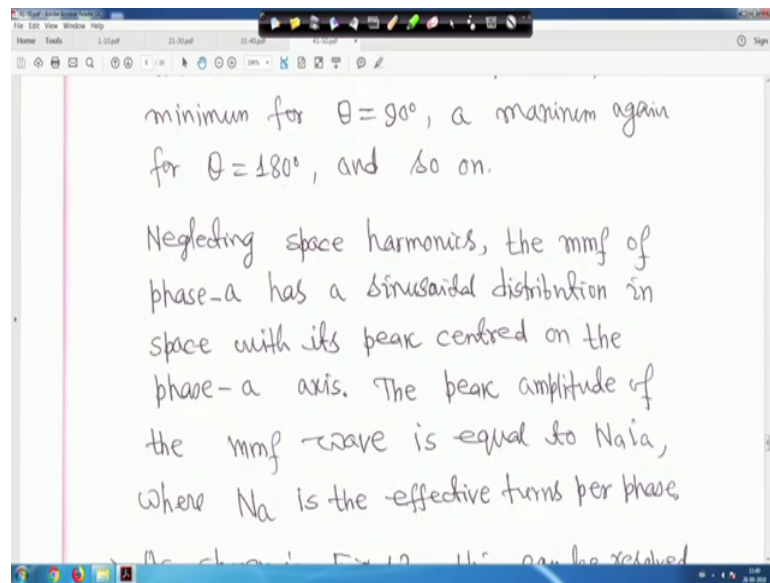 41-50.pdf - Adobe Acrobat Reader DC
File Edit View Window Help
Home Tools 1-10.pdf 21-30.pdf 31-40.pdf 41-50.pdf Sign
minimum for θ = 90°, a maximum again
for θ = 180°, and so on.
Neglecting space harmonics, the mmf of
phase-a has a sinusoidal distribution in
space with its peak centred on the
phase-a axis. The peak amplitude of
the mmf wave is equal to Naia,
where Na is the effective turns per phase.